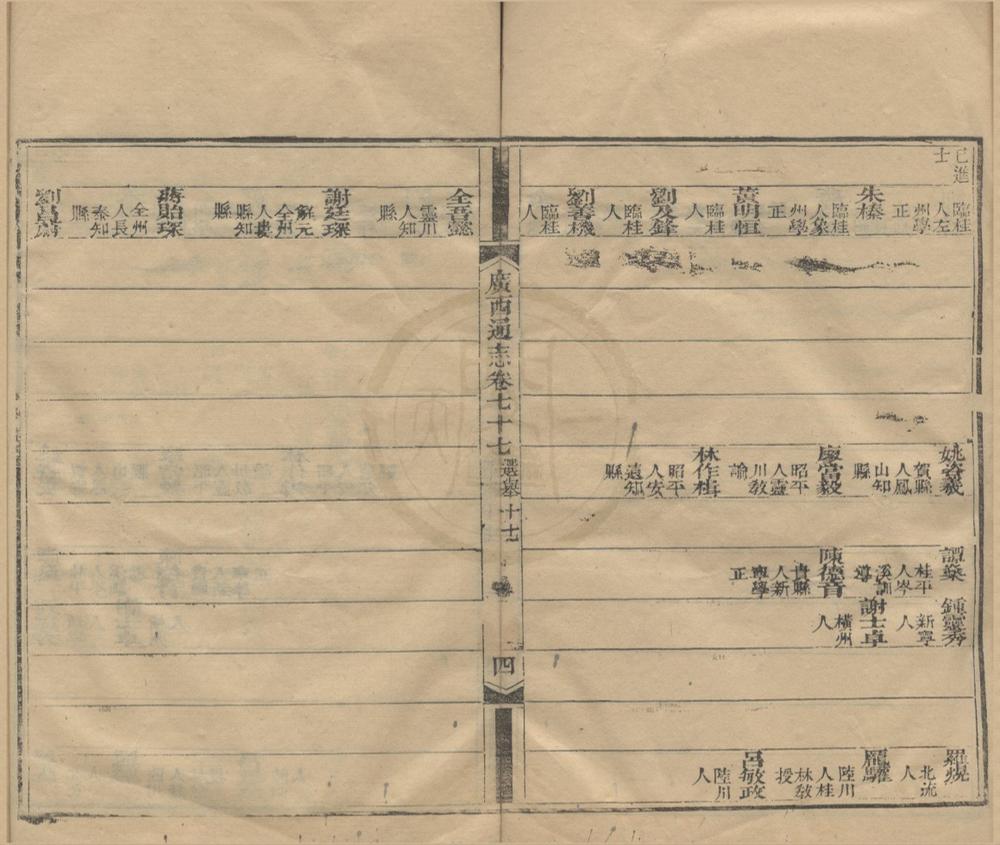 已進
士
臨桂
人左
州學
正
朱榛
臨桂
人象
州學
正
黃明恒
臨桂
人
劉及鋒
臨桂
人
劉善機
臨桂
人
姚
賀縣
人鳳
山知
縣
廖當毅
昭平
人靈
川教
諭
林作楫
昭平
人安
遠知
縣
譚
桂平
人岑
溪訓
導
陳德音
貴縣
人新
寧學
正
鍾靈秀
新寧
人
謝士卓
橫州
人
羅
北流
人
龐驊
陸川
人桂
林教
授
呂敏政
陸川
人
廣西通志卷七十七
選舉
十七
四
全
靈川
人知
縣
謝廷琛
解元
全州
人
縣知
縣
蔣貽琛
全州
人長
泰知
縣
劉